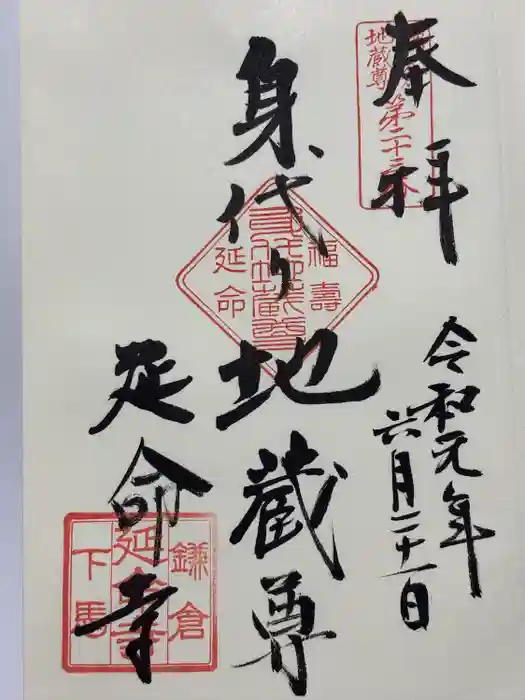 奉拝
地蔵尊
第二十三
令和元年
六月二十一日
身代り地蔵尊
福壽
身代地蔵尊
延命
延命寺
鎌倉
延命寺
下馬